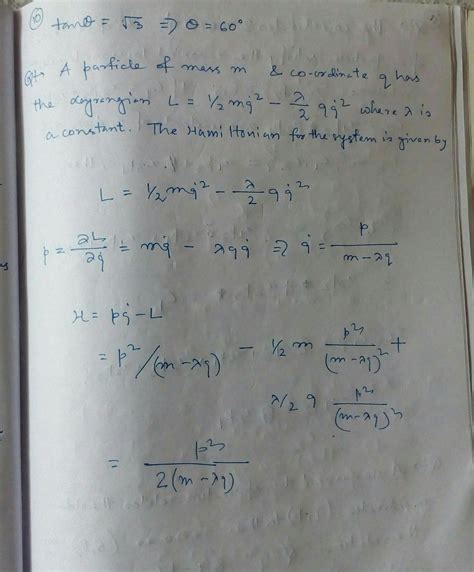 ⑩ tanθ = √3 ⇒ θ = 60°
Q→ A particle of mass m & co-ordinate q has
the Lagrangian L = 1/2 mq̇² - λ/2 qq̇² where λ is
a constant. The Hamiltonian for the system is given by
L = 1/2 mq̇² - λ/2 q q̇²
p = ∂L/∂q̇ = mq̇ - λqq̇ ⇒ q̇ = p/(m-λq)
H = pq̇ - L
= p²/(m-λq) - 1/2 m p²/(m-λq)² +
λ/2 q p²/(m-λq)²
= p²/2(m-λq)